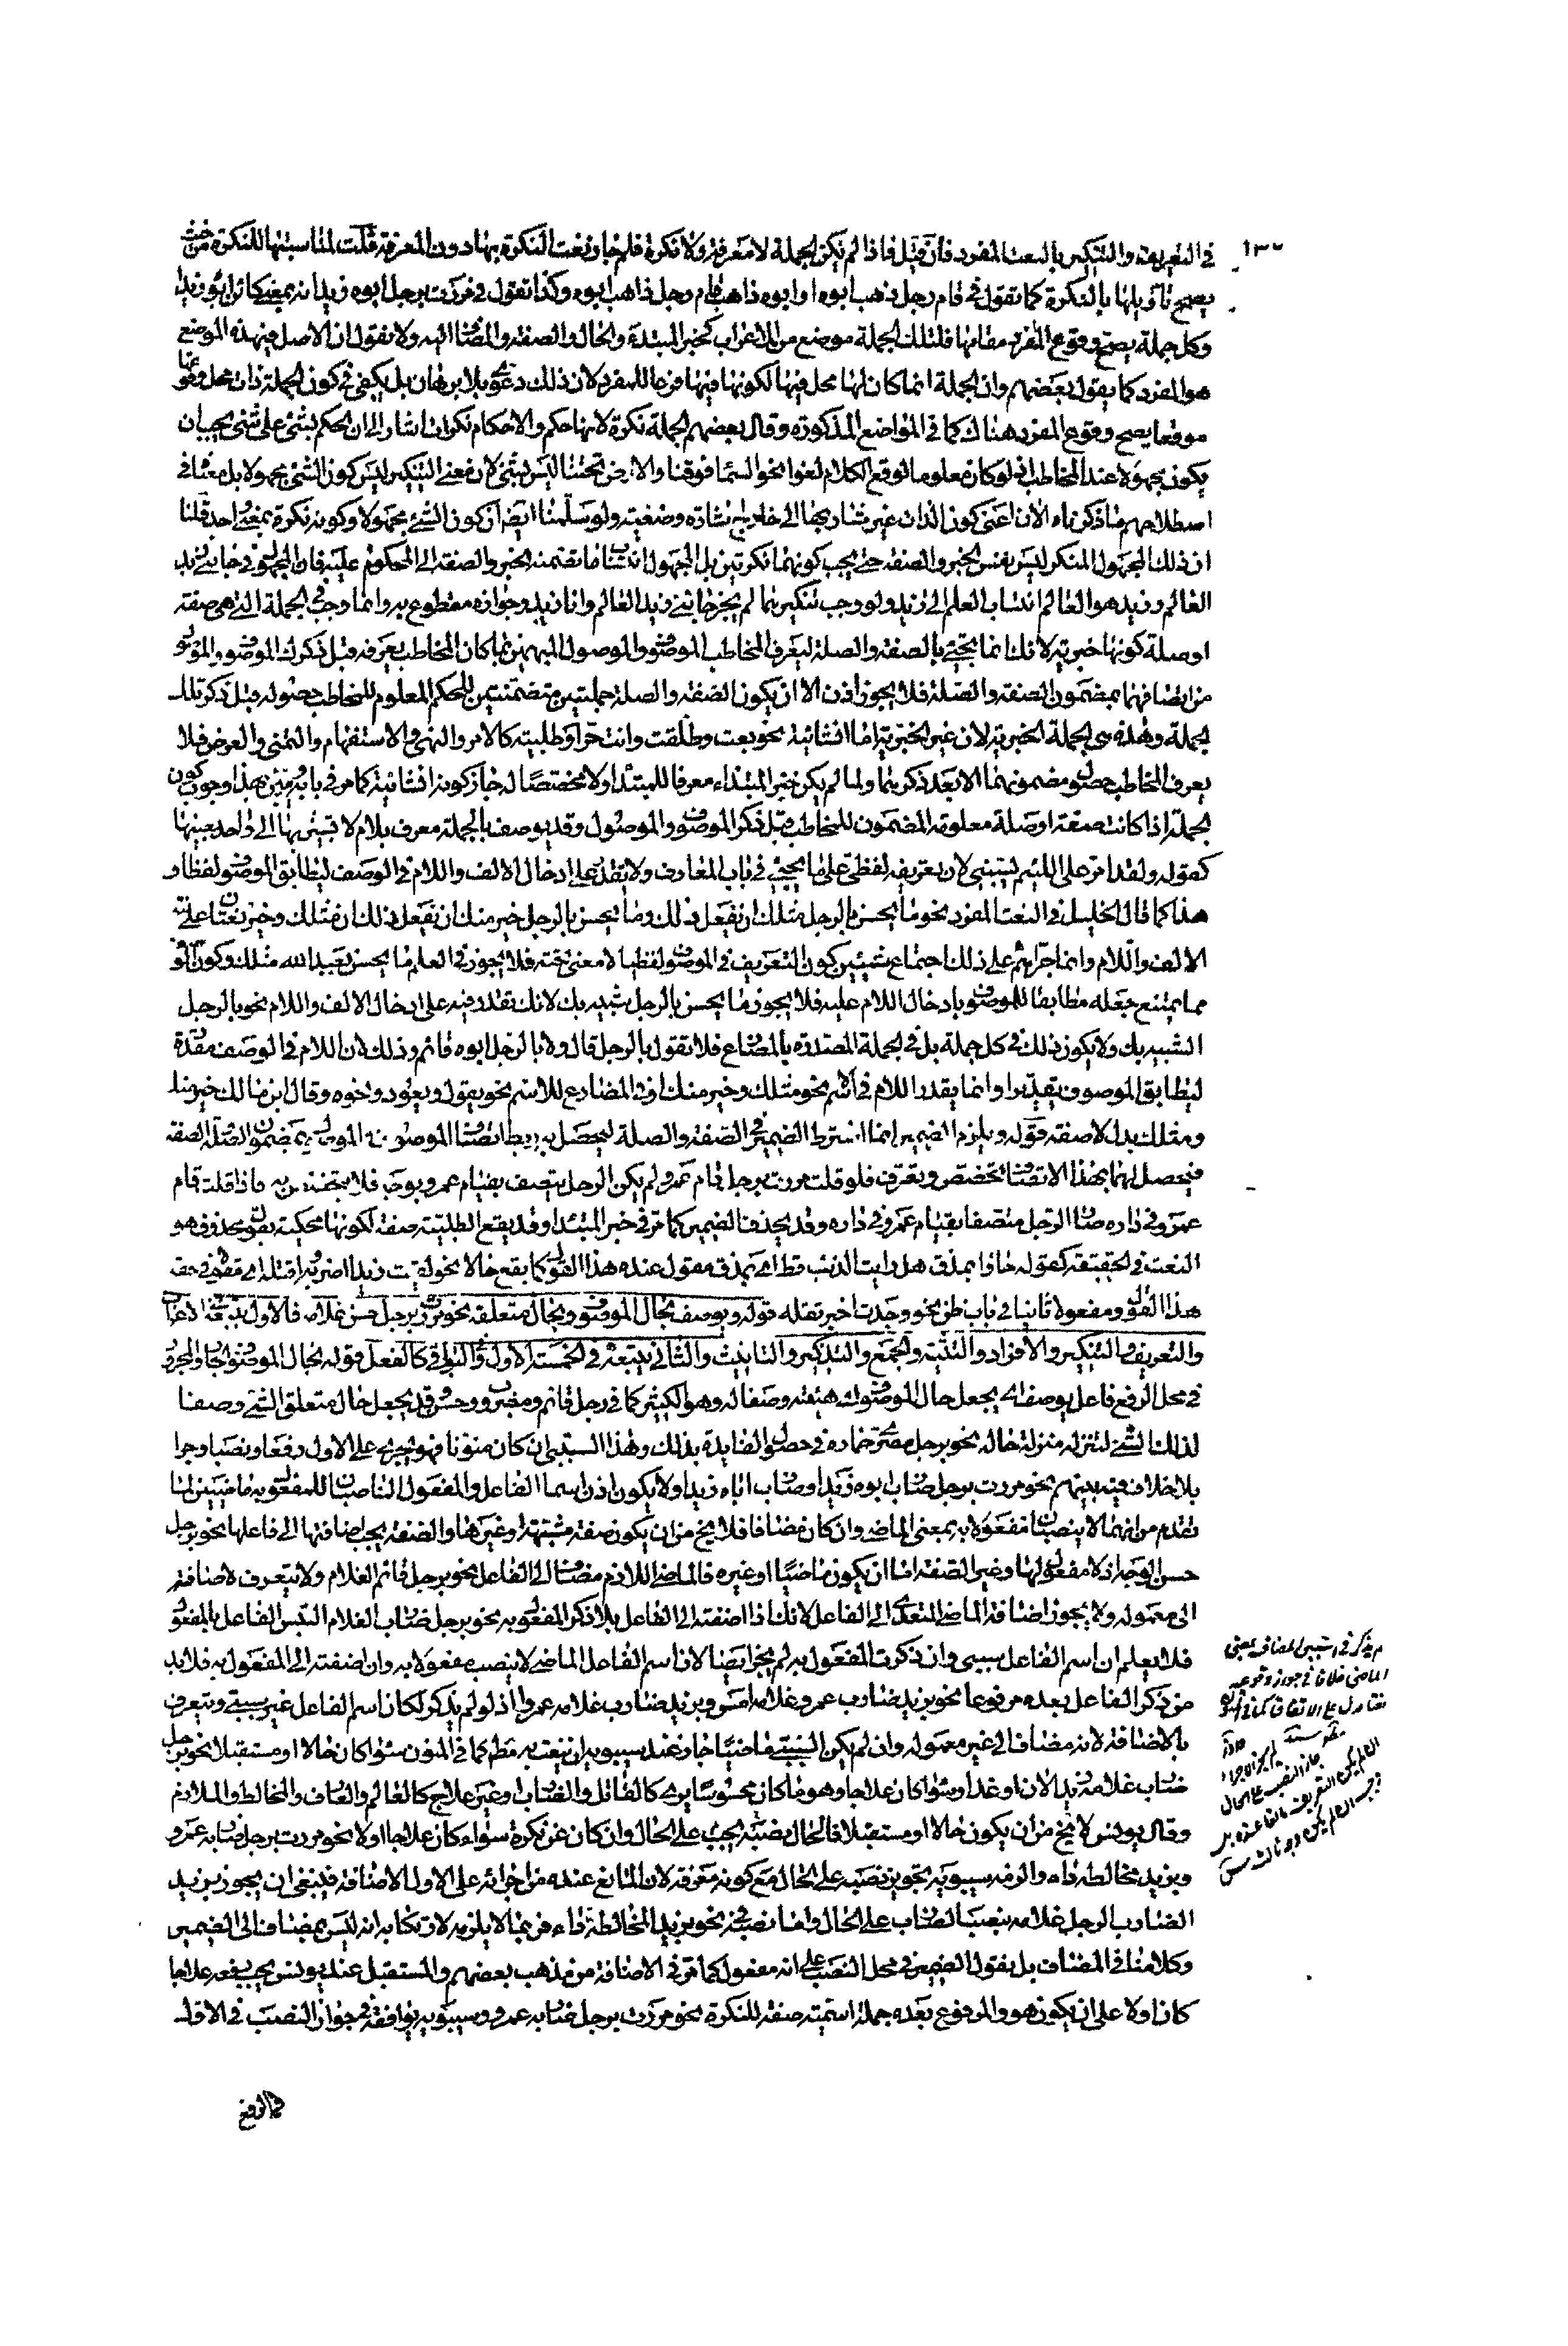 في التعريف والتنكير بالنعت المفرد فان قيل فاذا لم يكن الجملة لا معرفة ولا نكرة فلم جاز نعت النكرة بها دون المعرفة قلت لمناسبتها للنكرة من حيث
يصح تأويلها بالنكرة كما تقول في قام رجل ذهب ابوه او ابوه ذاهب قام رجل ذاهب ابوه وكذا تقول في مررت برجل ابوه زيد انه بمعنى كائن ابوه زيدا
وكل جملة يصح وقوع المفرد مقامها فلتلك الجملة موضع من الاعراب كخبر المبتدء والحال والصفة والمضاف اليه ولا نقول ان الاصل في هذه المواضع
هو المفرد كما يقول بعضهم وان الجملة انما كان لها محل فيها لكونها فيها فرعا للمفرد لان ذلك دعوى بلا برهان بل يكفي في كون الجملة ذات محل وقوعها
موقعا يصح وقوع المفرد هناك كما في المواضع المذكورة وقال بعضهم الجملة نكرة لانها حكم والاحكام نكرات اشار الى ان الحكم بشئ على شئ يجب ان
يكون مجهولا عند المخاطب اذ لو كان معلوما لوقع الكلام لغوا نحو السماء فوقنا والارض تحتنا وليس بشئ لان معنى التنكير ليس كون الشئ مجهولا بل معناه في
اصطلاحهم ما ذكرناه الان اعنى كون الذات غير مشار بها الى خارج اشارة وضعية ولو سلمنا ايضا ان كون الشئ مجهولا وكونه نكرة بمعنى احد قلنا
ان ذلك المجهول المنكر ليس نفس الخبر والصفة حتى يجب كونهما نكرتين بل المجهول انتساب ما تضمنه الخبر والصفة الى المحكوم عليه فان المجهول في جاءنى زيد
العالم وزيد هو العالم انتساب العلم الى زيد ولو وجب تنكيرهما لم يجز جاءنى زيد العالم وانا زيد وجوازه مقطوع به وانما وجب في الجملة التى هى صفة
او صلة كونها خبرية لانك انما تجئ بالصفة والصلة لتعرف المخاطب الموصوف والموصول المبهمين بما كان المخاطب يعرفه قبل ذكرك الموصوف والموصول
من اتصافهما بمضمون الصفة والصلة فلا يجوز اذن الا ان يكون الصفة والصلة جملتين متضمنتين للحكم المعلوم للمخاطب حصوله قبل ذكر تلك
الجملة وهذه هى الجملة الخبرية لان غير الخبرية اما انشائية نحو بعت وطلقت وانت حر او طلبية كالامر والنهى والاستفهام والتمنى والعرض فلا
يعرف المخاطب حصول مضمونهما الا بعد ذكرهما ولما لم يكن خبر المبتداء معرفا للمبتدا ولا مخصصا له جاز كونه انشائية كما مر في بابه فتبين بهذا وجوب كون
الجملة اذا كانت صفة او صلة معلومة المضمون للمخاطب قبل ذكر الموصوف والموصول وقد يوصف بالجملة معرف بلام لا تشير بها الى واحد بعينه
كقوله ولقد امر على اللئيم يسبنى لان تعريفه لفظى على ما يجئ في باب المعارف ولا تقدر على ادخال الالف واللام في الوصف ليطابق الموصوف لفظا و
هذا كما قال الخليل في النعت المفرد نحو ما يحسن بالرجل مثلك ان يفعل ذلك وما يحسن بالرجل خير منك ان يفعل ذلك ان مثلك وخير نعتان على نية
الالف واللام وانما جرأهم على ذلك اجتماع شيئين كون التعريف في الموصوف لفظيا لا معنى تحته فلا يجوز في العلم ما يحسن بعبد الله مثلك وكون الوصف
مما يمتنع جعله مطابقا للموصوف بادخال اللام عليه فلا يجوز ما يحسن بالرجل شبيه بك لانك تقدر فيه على ادخال الالف واللام نحو بالرجل
الشبيه بك ولا يكون ذلك في كل جملة بل في الجملة المصدرة بالمضارع فلا تقول بالرجل قال ولا بالرجل ابوه قائم وذلك لان اللام في الوصف مقدرة
ليطابق الموصوف تقديرا وانما يقدر اللام في الاسم نحو مثلك وخير منك او في المضارع للاسم نحو يقول ويعود ونحوه وقال ابن مالك خير منك
ومثلك بدل لا صفة قوله ويلزم الضمير انما اشترط الضمير في الصفة والصلة ليحصل به ربط اتصاف الموصوف والموصول بمضمون الصلة والصفة
فيحصل لهما بهذا الاتصاف تخصص وتعرف فلو قلت مررت برجل قام عمرو لم يكن الرجل متصف بقيام عمرو بوجه فلا يتخصص به فاذا قلت قام
عمرو في داره صار الرجل متصفا بقيام عمرو في داره وقد يحذف الضمير كما مر في خبر المبتدا وقد يقع الطلبية صفة لكونها محكية بقول محذوف هو
النعت في الحقيقة كقوله جاؤا بمذق هل رايت الذئب قط اى بمذق مقول عنده هذا القول كما يقع حالا نحو لقيت زيدا اضربه او اقتله اى مقولا في حقه
هذا القول ومفعولا ثانيا في باب ظن نحو وجدت اخبر تقله قوله ويوصف بحال الموصوف وبحال متعلقه نحو مررت برجل حسن غلامه فالاول يتبعه في الاعراب
والتعريف والتنكير والافراد والتثنية والجمع والتذكير والتانيث والثانى يتبعه في الخمسة الاول وفي البواقى كالفعل قوله بحال الموصوف الجار والمجرور
في محل الرفع فاعل يوصف اى يجعل حال الموصوف اى هيئته وصفا له وهو الكثير كما في رجل قائم ومضروب وحسن وقد يجعل حال متعلق الشئ وصفا
لذلك الشئ لتنزله منزلة حاله نحو برجل مصر حماره في حصول الفايدة بذلك وهذا السببى ان كان منونا فهو يجرى على الاول رفعا ونصبا وجرا
بلا خلاف فيه بينهم نحو مررت برجل ضارب ابوه زيدا وضارب اباه زيد ولا يكون اذن اسما الفاعل والمفعول الناصبان للمفعول به ماضيين لما
تقدم من انهما لا ينصبان مفعولا به بمعنى الماضى وان كان مضافا فلا يخ من ان يكون صفة مشبهة او غيرها والصفة يجب اضافتها الى فاعلها نحو برجل
حسن الوجه اذ لا مفعول لها وغير الصفة اما ان يكون ماضيا او غيره فالماضى اللازم مضاف الى الفاعل نحو برجل قائم الغلام ولا يتعرف لاضافته
الى معموله ولا يجوز اضافة الماضى المتعدى الى الفاعل لانك اذا اضفته الى الفاعل بلا ذكر المفعول به نحو برجل ضارب الغلام التبس الفاعل بالمفعول
فلا يعلم ان اسم الفاعل سببى وان ذكرت المفعول به لم يجز ايضا لان اسم الفاعل الماضى لا ينصب مفعولا به وان اضفته الى المفعول به فلا بد
من ذكر الفاعل بعده مرفوعا نحو بزيد ضارب عمرو غلامه امس وبزيد ضارب غلامه عمرو اذ لو لم يذكر لكان اسم الفاعل غير سببى ويتعرف
بالاضافة لانه مضاف الى غير معموله وان لم يكن السببى ماضيا جاز عند سيبويه ان ينعت به مطم كما في المنون سواء كان حالا او مستقبلا نحو برجل
ضارب غلامه زيد الان او غدا وسواء كان علاجا وهو ما كان محسوسا يرى كالقاتل والضارب او غير علاج كالعالم والعارف والمخالط والملازم
وقال يونس لا يخ من ان يكون حالا او مستقبلا فالحال نصبه يجب على الحال وان كان عن نكرة سواء كان علاجا اولا نحو مررت برجل ضاربه عمرو
وبزيد مخالطه داء والزمه سيبويه تجويز نصبه على الحال مع كونه معرفة لان المانع عنده من اجرائه على الاول الاضافة فينبغى ان يجوز بزيد
الضارب الرجل غلامه بنصب الضارب على الحال واما نصبه في نحو بزيد المخالطه داء فربما لا يلزمه لارتكابه انه ليس بمضاف الى الضمير
وكلامنا في المضاف بل يقول الضمير في محل النصب على انه مفعول كما مر في الاضافة من مذهب بعضهم والمستقبل عند يونس يجب رفعه علاجا
كان اولا على ان يكون هو والمرفوع بعده جملة اسمية صفة للنكرة نحو مررت برجل ضاربه عمرو وسيبويه يوافقه في جواز النصب في الاول